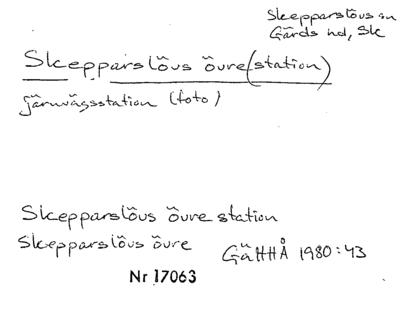 Skepparslövs sn
Gärds hd, Sk
Skepparslövs övre (station)
järnvägsstation (foto)
Skepparslövs övre station
Skepparslövs övre GäHHÅ 1980:43
Nr 17063